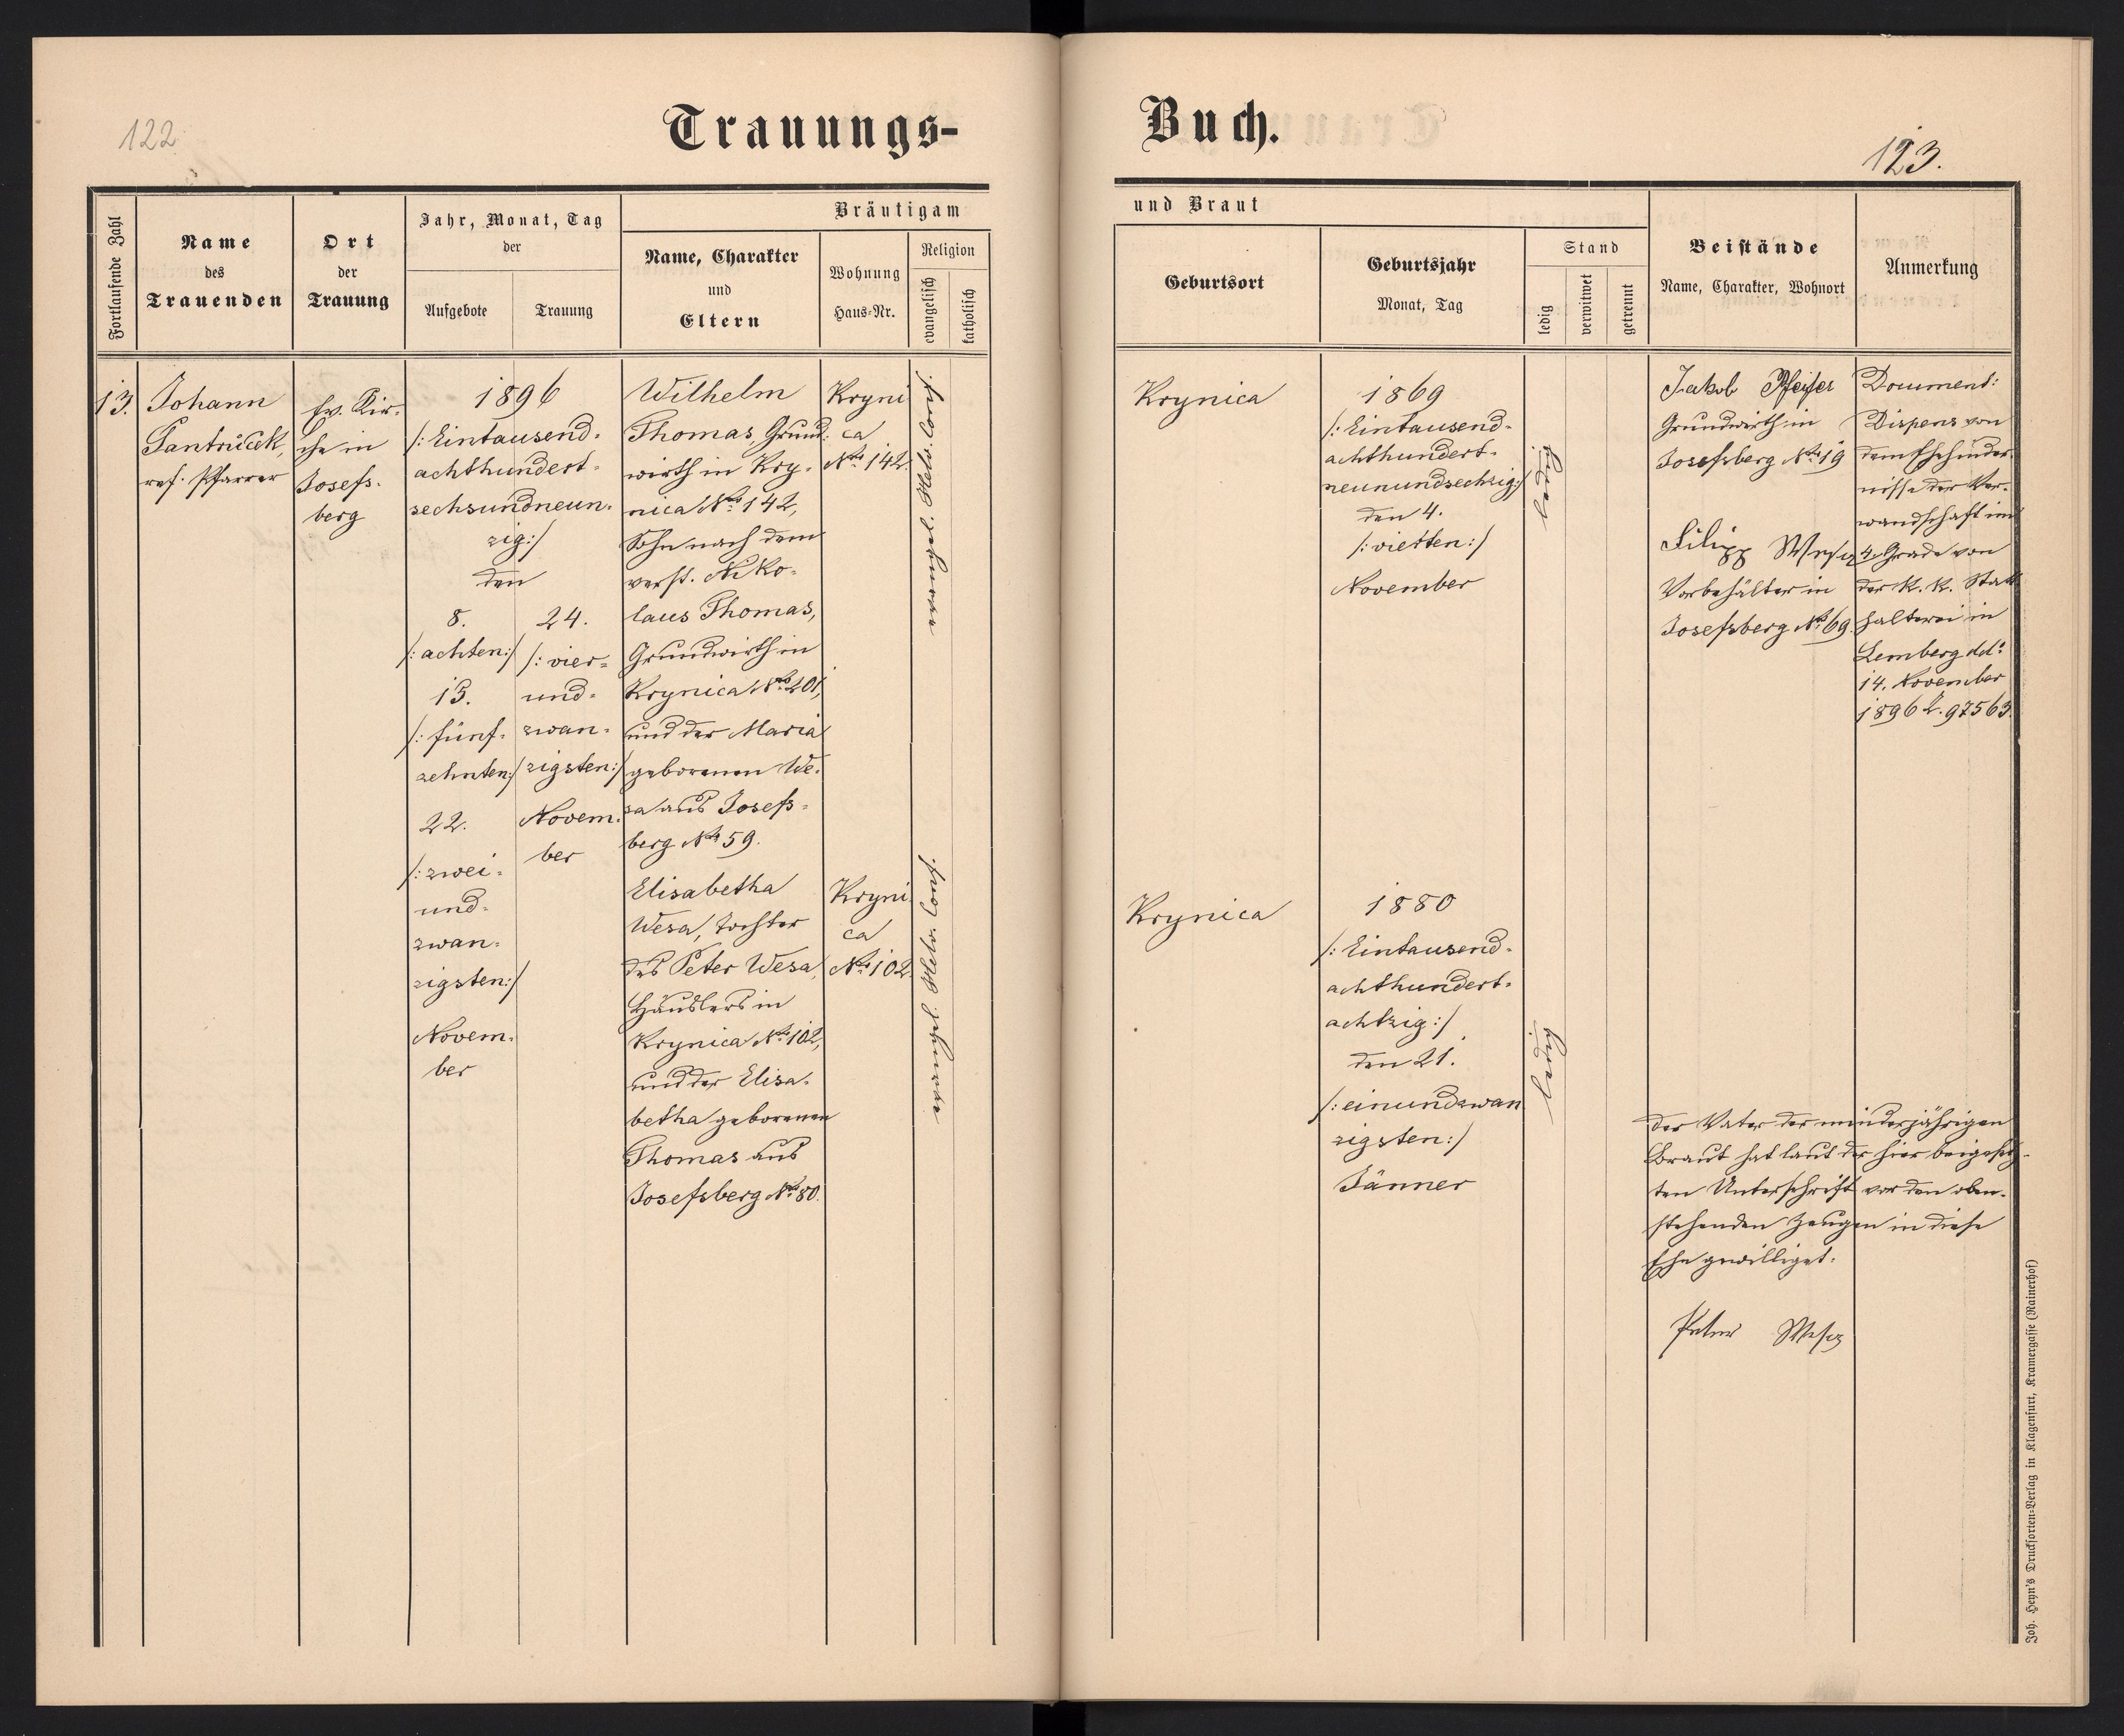 122
Trauungs-
Fortlaufende Zahl
Name
des
Trauenden
Ort
der
Trauung
Jahr, Monat, Tag
der
Aufgebote
Trauung
Bräutigam
Name, Charakter
und
Eltern
Wohnung
Haus-Nr.
Religion
evangelisch
katholisch
13.
Johann
Santrůček,
ref. Pfarrer
Ev. Kir-
che in
Josefs-
berg
1896
/: Eintausend-
achthundert-
sechsundneun-
zig :/
den
8.
/: achten :/
15.
/: fünf-
zehnten :/
22.
/: zwei-
und-
zwan-
zigsten :/
Novem-
ber
24.
/: vier-
und-
zwan-
zigsten :/
Novem-
ber
Wilhelm
Thomas, Grund-
wirth in Kry-
nica No. 142,
Sohn nach dem
verst. Niko-
laus Thomas,
Grundwirth in
Krynica No. 201,
und der Maria
geborenen We-
sa aus Josefs-
berg No. 59.
Kryni
ca
No. 142.
evangel. Helv. Conf.
Elisabetha
Wesa, Tochter
des Peter Wesa,
Häuslers in
Krynica No. 102,
und der Elisa-
betha geborenen
Thomas aus
Josefsberg No. 80.
Kryni
ca
No. 102.
evangel. Helv. Conf.
Buch.
123.
und Braut
Geburtsort
Geburtsjahr
Monat, Tag
Stand
ledig
verwitwet
getrennt
Beistände
Name, Charakter, Wohnort
Anmerkung
Krynica
1869
/: Eintausend-
achthundert-
neunundsechzig :/
den 4.
/: vierten :/
November
ledig
Jakob Pfeifer
Grundwirth in
Josefsberg No. 19
Filipp Wesa
Vorbehälter in
Josefsberg No. 69.
Document:
Dispens von
dem Ehehinder-
nisse der Ver-
wandschaft im
4. Grade von
der k. k. Statt
halterei in
Lemberg dd:
14. November
1896 Z. 97563.
Krynica
1880
/: Eintausend-
achthundert-
achtzig :/
den 21.
/: einundzwan
zigsten :/
Jänner
ledig
Der Vater der minderjährigen
Braut hat laut der hier beigesetz-
ten Unterschrift vor den oben-
stehenden Zeugen in diese
Ehe gewilliget:
Peter Wesa
Joh. Heyn's Drucksorten-Verlag in Klagenfurt, Kramergasse (Rainerhof)